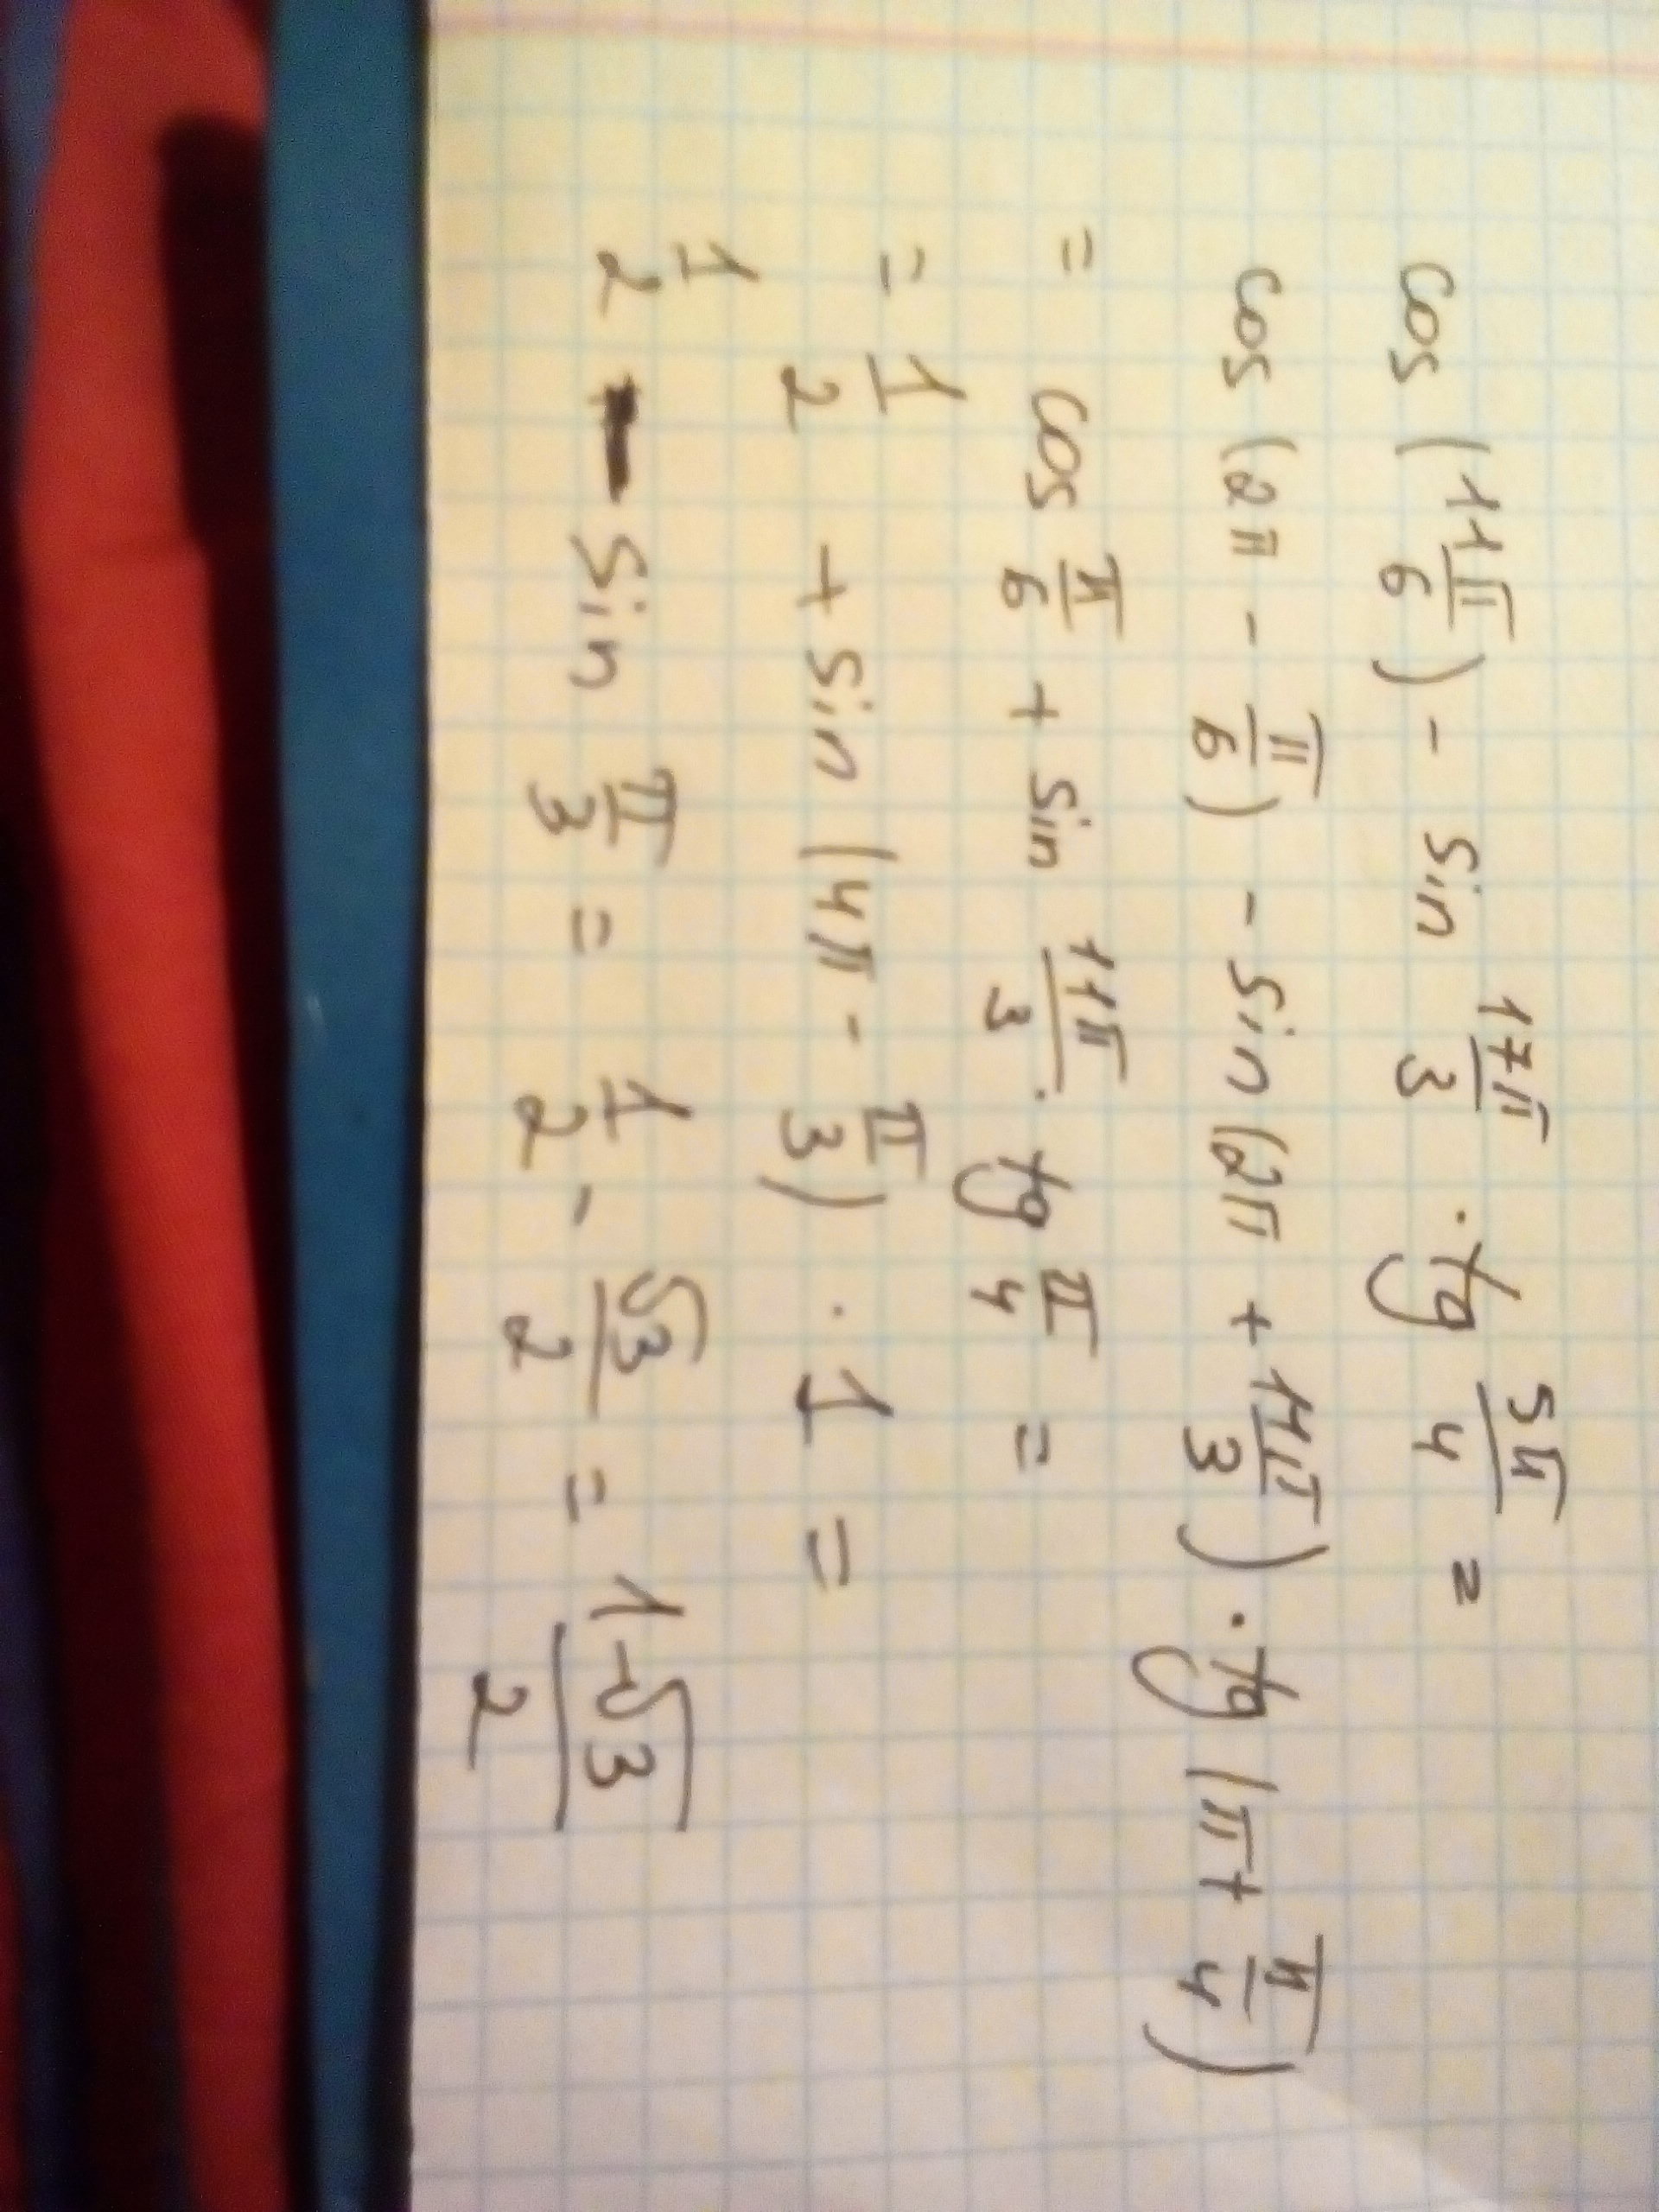 cos (11π/6) - sin 17π/3 · tg 5π/4 =
cos (2π - π/6) - sin (2π + 11π/3) · tg (π + π/4)
= cos π/6 + sin 11π/3 · tg π/4 =
= 1/2 + sin (4π - π/3) · 1 =
1/2 - sin π/3 = 1/2 - √3/2 = 1-√3/2